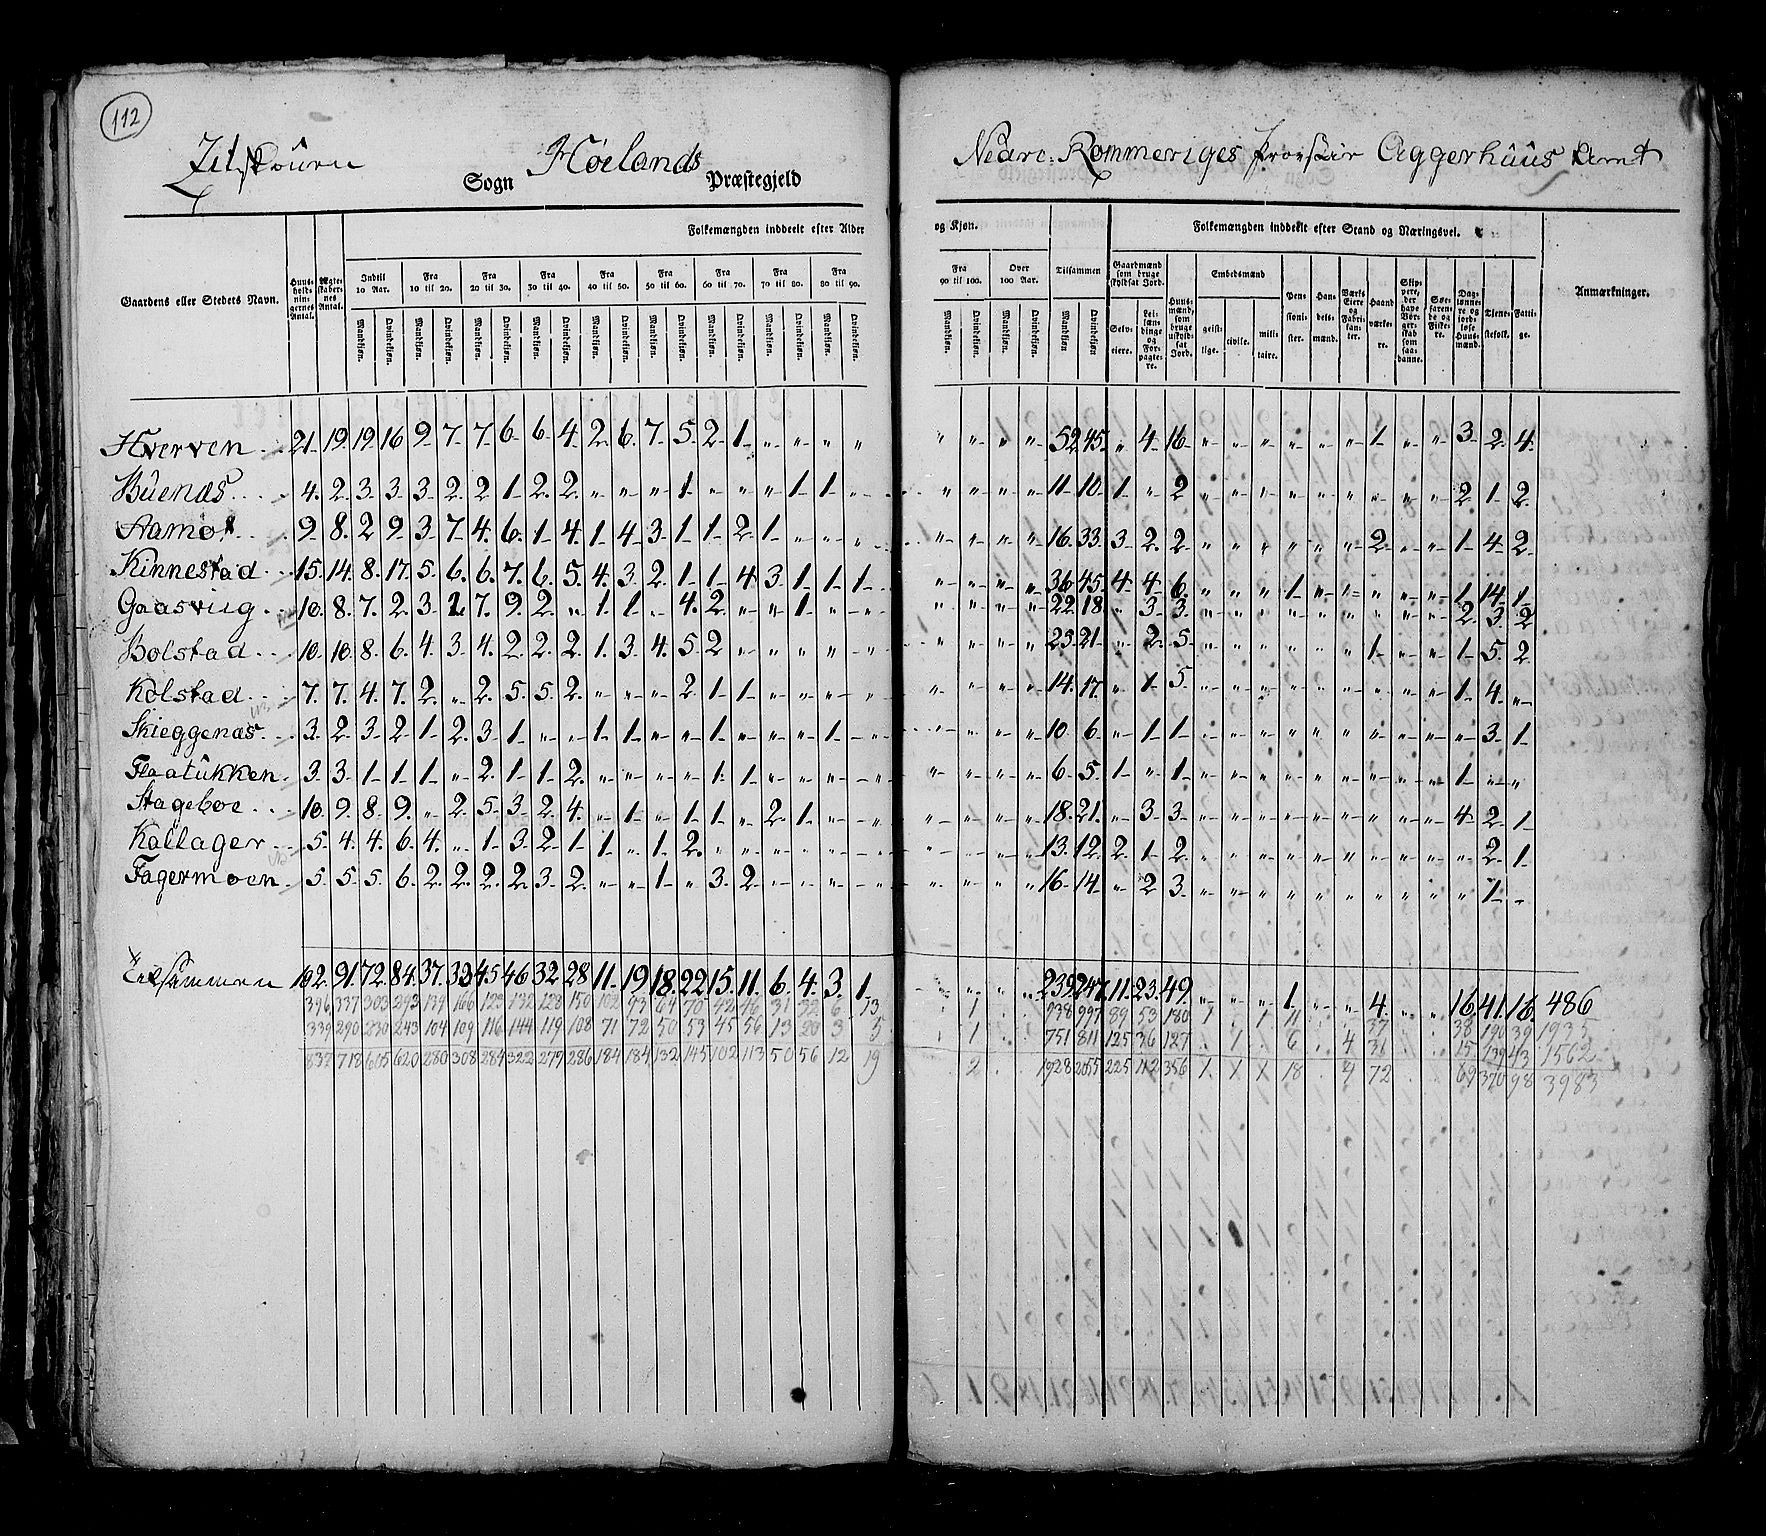 112
Sogn Høelands Præstegjeld
Nedre Rommeriges Provstie Aggerhuus Amt
Folkemængden inddeelt efter Alder og Kjøn.
Folkemængden inddeelt efter Stand og Næringsvei.
Gaardens eller Stedets Navn.
Huusholdningernes Antal.
Ægteskabernes Antal.
Indtil 10 Aar.
Fra 10 til 20.
Fra 20 til 30.
Fra 30 til 40.
Fra 40 til 50.
Fra 50 til 60.
Fra 60 til 70.
Fra 70 til 80.
Fra 80 til 90.
Fra 90 til 100.
Over 100 Aar.
Tilsammen
Mandkjøn. Qvindekjøn.
Gaardmænd som bruge skyldsat Jord.
Selveiere.
Leilændinge og Forpagtere.
Huusmænd, som bruge uskyldsat Jord.
Embedsmænd
geistlige. civile. militaire.
Pensionister.
Handelsmænd.
Værks Eiere og Fabrikanter.
Haandværkere.
Skippere, der have Borgerskab som saadanne.
Søefarende og Fiskere.
Daglønnere og jordløse Huusmænd.
Tjenestefolk.
Fattige.
Anmærkninger.
Hverven 21 19 19 16 9 7 7 6 6 4 2 6 7 5 2 1 " " " " " " " " 52 45 " 4 16 " " " " " " 1 " " 3 2 4
Buenæs 4 2 3 3 3 2 2 1 2 2 " " " 1 " " " 1 1 " " " " " 11 10 1 " 2 " " " " " " " " " 2 1 2
Aamot 9 8 2 9 3 7 4 6 1 4 1 4 3 1 1 2 1 " " " " " " " 16 33 3 2 2 " " " " " " 2 " " 1 4 2
Kinnestad 15 14 8 17 5 6 6 7 6 5 4 3 2 1 1 4 3 1 1 1 " " " " 36 45 4 4 6 " " " 1 " " " " " 1 14 1
Gaasviig 10 8 7 2 3 1 7 9 2 " 1 1 " 4 2 " " 1 " " " " " " 22 18 " 3 3 " " " " " " " " " 2 3 2
Bolstad 10 10 8 6 4 3 4 2 2 2 1 3 4 5 2 " " " " " " " " " 25 21 " 2 5 " " " " " " 1 " " 1 5 2
Kolstad 7 7 4 7 2 " 2 5 5 2 " " " 2 1 1 " " " " " " " " 14 17 " 1 5 " " " " " " " " " 1 4 "
Skieggenæs 3 2 3 2 1 2 3 1 " " 1 1 " " 1 " " " 1 " " " " " 10 6 " 1 1 " " " " " " " " " " 3 1
Flaatukken 3 3 1 1 1 " 2 1 1 2 " " " " 1 1 " " " " " " " " 6 5 1 " 1 " " " " " " " " " 1 " "
Stageboe 10 9 8 9 " 2 5 3 2 4 " 1 " 1 1 " 2 1 " " " " " " 18 21 " 3 3 " " " " " " " " " 4 2 1
Kollager 5 4 4 6 4 " 1 3 2 1 1 " 1 2 " " " " " " " " " " 13 12 2 1 2 " " " " " " " " " " 2 1
Fagermoen 5 5 5 6 2 2 2 2 3 2 " " 1 " 3 2 " " " " " " " " 16 14 " 2 3 " " " " " " " " " " 1 "
Tilsammen 102 91 72 84 37 33 45 46 32 28 11 19 18 22 15 11 6 4 3 1 " " " " 239 247 11 23 49 " " " 1 " " 4 " " 16 41 16 486
396 337 303 293 139 166 123 132 128 150 102 93 64 70 42 46 31 32 6 13 1 938 997 89 53 180 1 1 11 37 38 190 39 1935
339 290 230 243 104 109 116 144 119 108 71 72 50 53 45 56 13 20 3 5 1 751 811 125 36 127 1 6 4 31 15 139 43 1562
837 718 605 620 280 308 284 322 279 286 184 184 132 145 102 113 50 56 12 19 2 1928 2055 225 112 356 1 1 1 18 4 72 69 370 98 3983